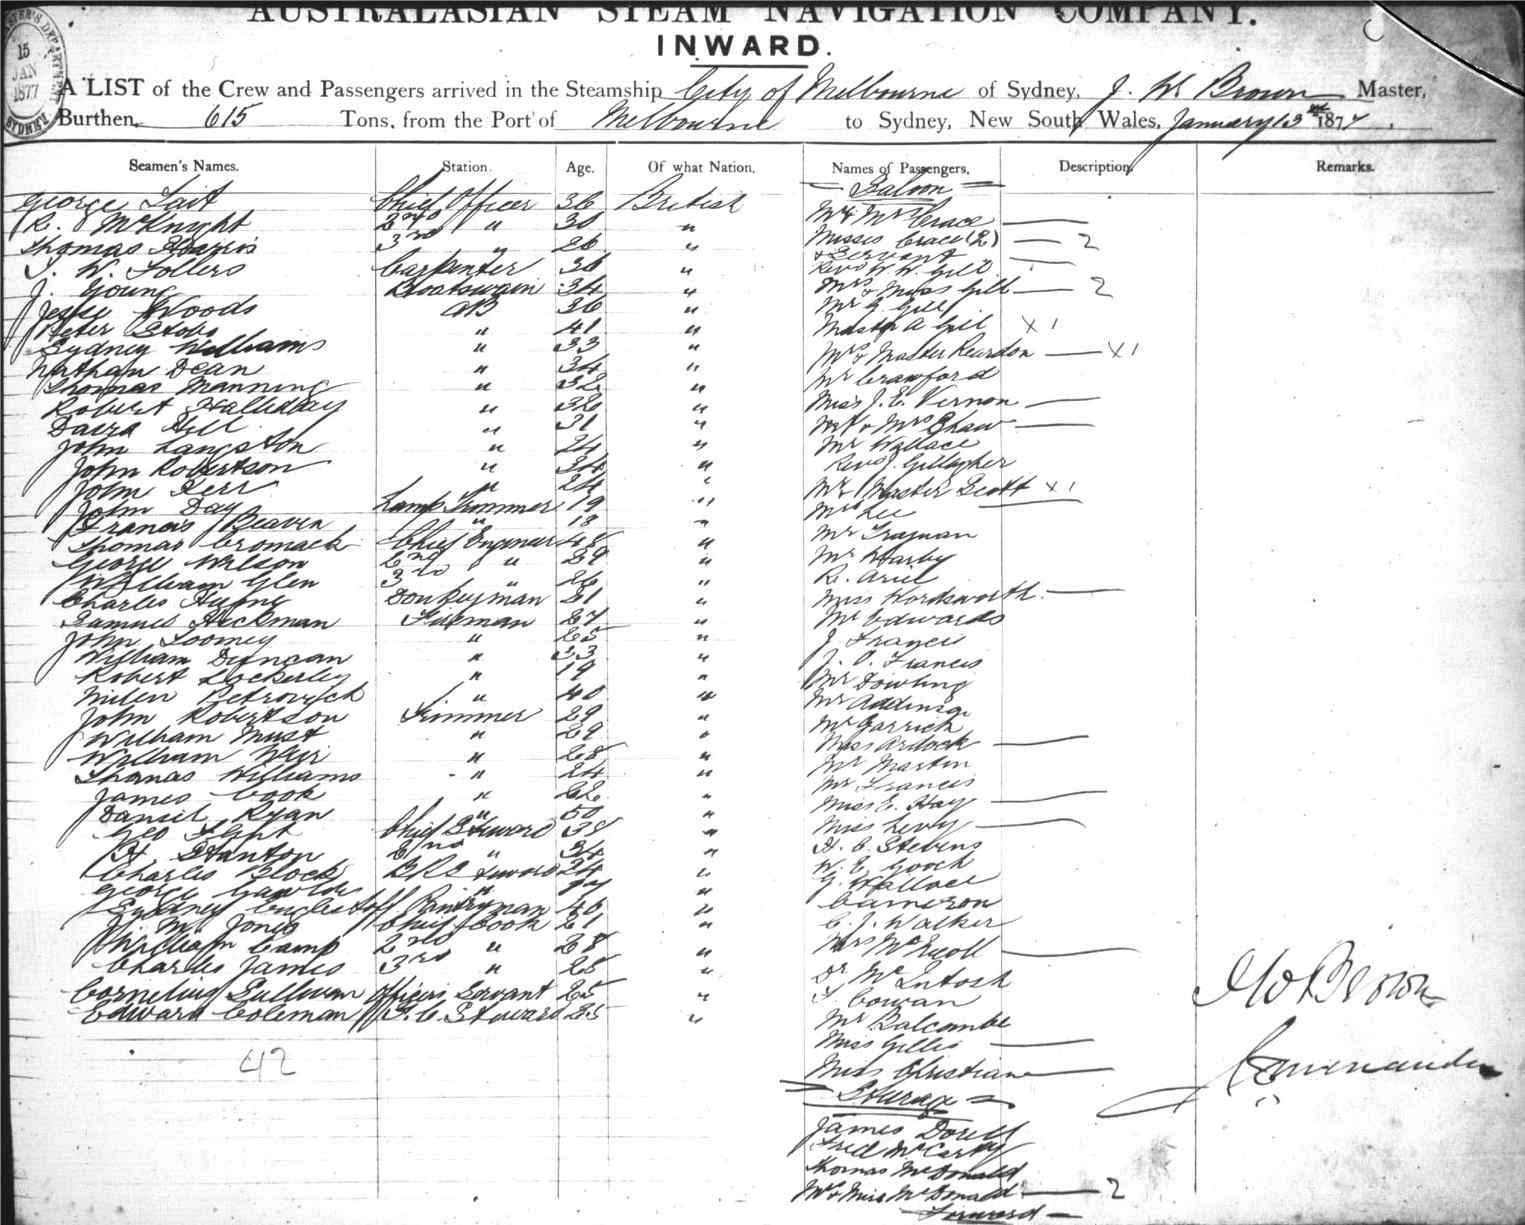 AUSTRALASIAN STEAM NAVIGATION COMPANY.
INWARD.
15
JAN
1877
SYDNEY
A LIST of the Crew and Passengers arrived in the Steamship City of Melbourne of Sydney, J. W Brown Master,
Burthen, 615 Tons, from the Port of Melbourne to Sydney, New South Wales, January 13 1877.
Seamen's Names. Station. Age. Of what Nation. Names of Passengers, Description Remarks.
George Tait Chief Officer 36 British
R. McKnight 2nd " 30 "
Thomas Harris 3rd " 26 "
Carpenter 36 "
J. Young Boatswain 34 "
Jesse Woods AB 36 "
Peter " 41 "
Sydney Williams " 33 "
Nathan Dean " 34 "
Thomas Manning " 32 "
Robert Halliday " "
David Hill " 31 "
John Langston " 24 "
John Robertson " 34 "
John Kerr " 24 "
John Day Lamp Trimmer 19 "
Francis Beaven " 18 "
Thomas Cromack Chief Engineer "
George Wilson 2nd " 29 "
William Glen 3rd " 26 "
Charles Donkeyman "
Samuel Hickman Fireman 27 "
John Toomey " 25 "
William Duncan " 33 "
Robert Lockerley " 19 "
Petrovich " 40 "
John Robertson Trimmer 29 "
William Must " 29 "
William Weir " 28 "
Thomas Williams " 24 "
James Cook " 22 "
Daniel Ryan " 50 "
Geo Chief Steward 38 "
H Stanton 2nd " 34 "
Charles Block Steward 24 "
George " "
Sydney Pantryman 46 "
J. M. Jones Chief Cook "
William Camp 2nd " 28 "
Charles James 3rd " 25 "
Cornelius Sullivan Officers Servant 25 "
Edward Coleman Steward 25 "
42
Saloon
Mr & Mrs Grace
Misses Grace (2) 2
& Servant
Revd W. W. Gill
Mrs & Miss Gill 2
Mr G. Gill
Master A Gill X 1
Mrs & Master Reardon X 1
Mr Crawford
Miss J. E. Vernon
Mr & Mrs Shaw
Mr Wallace
Revd J. Gillagher
Mr Master Scott X 1
Lee
Mr
Mr
R. Ariel
Miss Wordsworth
Mr Edwards
J Francis
J. O. Francis
Mr Dowling
Mr
Mr Garrick
Miss Ardock
Mr Martin
Mr Francis
Miss E. Hay
Miss Levy
H. C. Stevens
W. E. Gooch
G. Wallace
Cameron
C. J. Walker
Mrs
Dr McIntosh
Cowan
Mr Balcombe
Miss Gillis
Miss Christian
Steerage
James Dorell
Fred McCarthy
Thomas McDonald
Mr & Miss McDonald 2
Forward
J W Brown
Commander